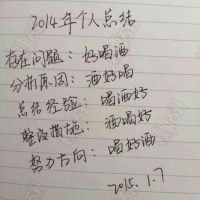 2014年个人总结
存在问题：好喝酒
分析原因：酒好喝
总结经验：喝酒好
整改措施：酒喝好
努力方向：喝好酒
2015.1.7